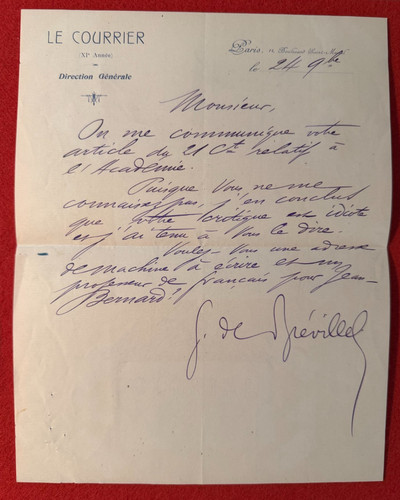 LE COURRIER
(XIe Année)
Direction Générale
Paris,
le 24 9bre
Monsieur,
On me communique votre
article du 21 Ct relatif à
l'Académie.
Puisque vous ne me
connaissez pas, j'en conclus
que votre critique est idiote
et j'ai tenu à vous le dire.
Voulez-vous une adresse
de machine à écrire et un
professeur de français pour Jean-
Bernard!
G. de Bréville